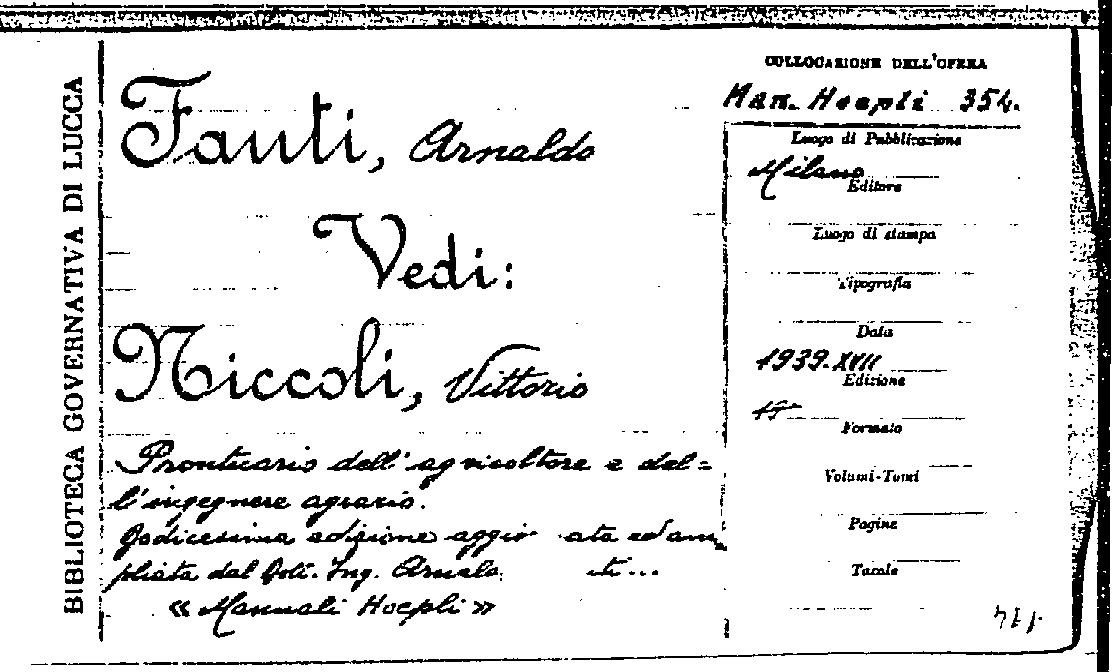 BIBLIOTECA GOVERNATIVA DI LUCCA
Fanti, Arnaldo
Vedi:
Niccoli, Vittorio
Prontuario dell'agricoltore e del=
l'ingegnere agrario.
edizione aggior ata ed am
pliata dal Dott. Ing. Arnal ti...
« Manuali Hoepli »
COLLOCAZIONE DELL'OPERA
Man. Hoepli 354.
Luogo di Pubblicazione
Milano
Editore
Luogo di stampa
Tipografia
Data
1939. XVII
Edizione
Formato
Volumi-Tomi
Pagine
Tavole